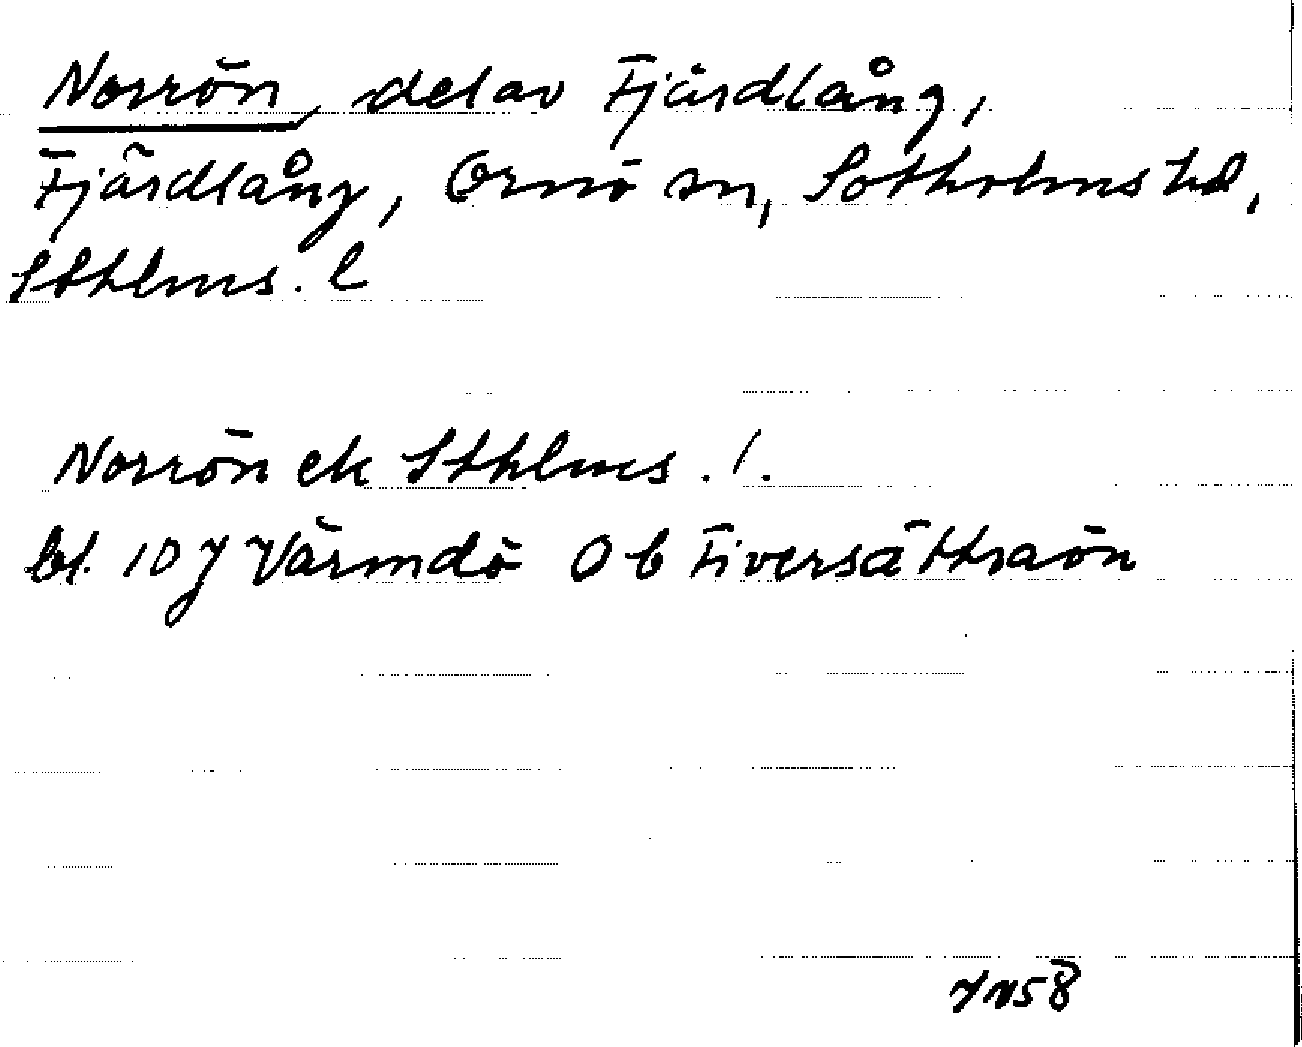 Norrön, del av Fjärdlång,
Fjärdlång, Ornö sn, Sotholms hd,
Sthlms. l
Norrön ek Sthlms. l.
bl. 10 J Värmdö O b Fiversättraön